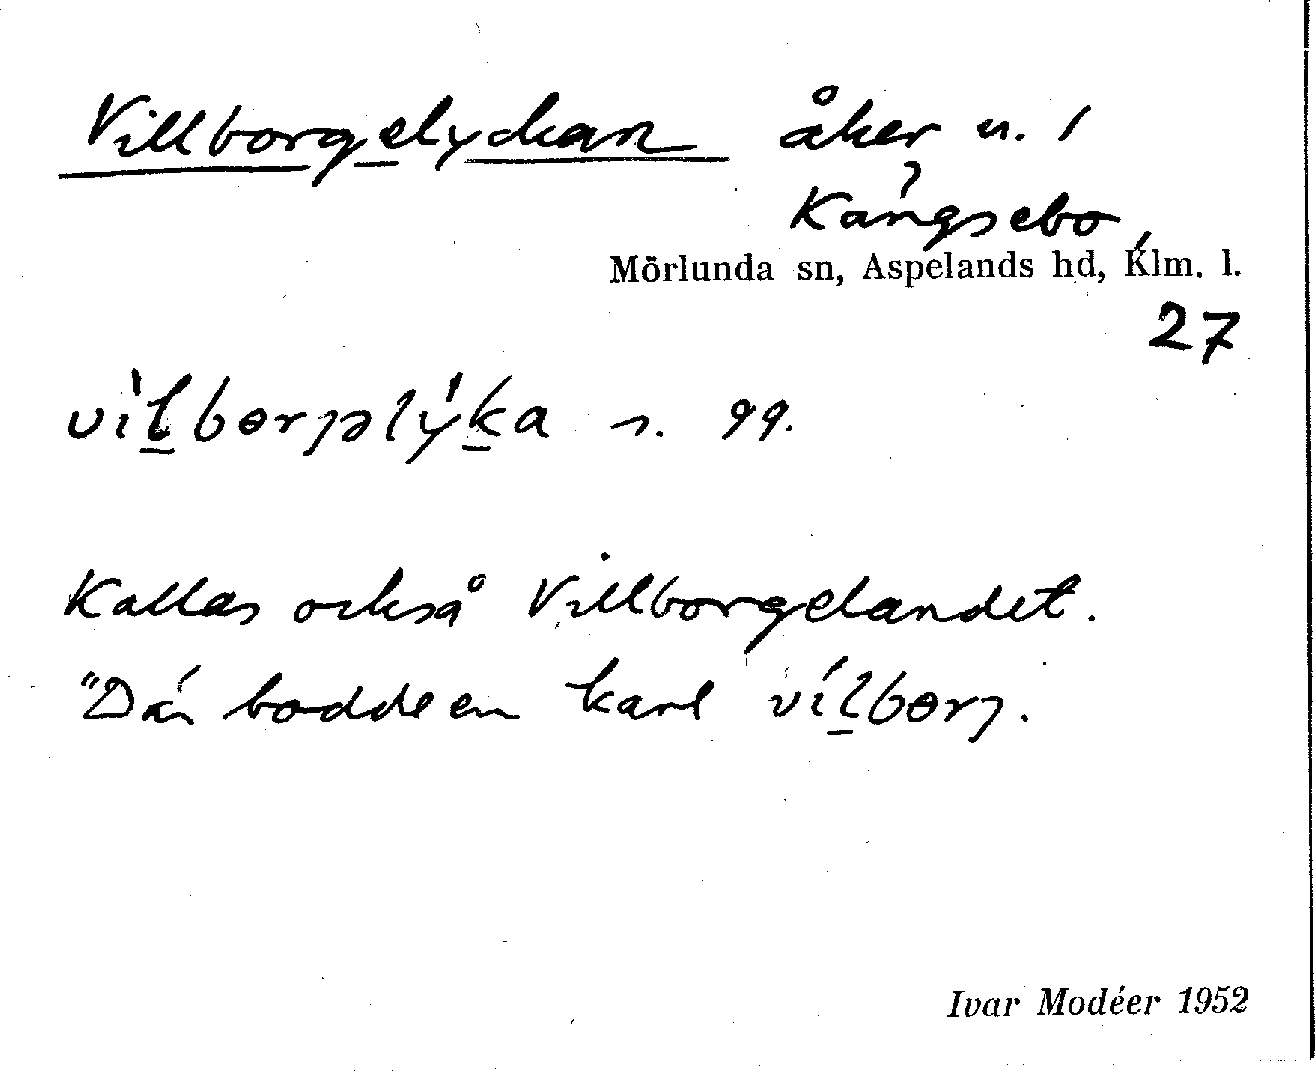 Villborgelyckan åker u. 1
Kångsebo,
Mörlunda sn, Aspelands hd, Klm. l.
27
s. 99.
Kallas också Villborgelandet.
"Där bodde en karl vílborj.
Ivar Modéer 1952